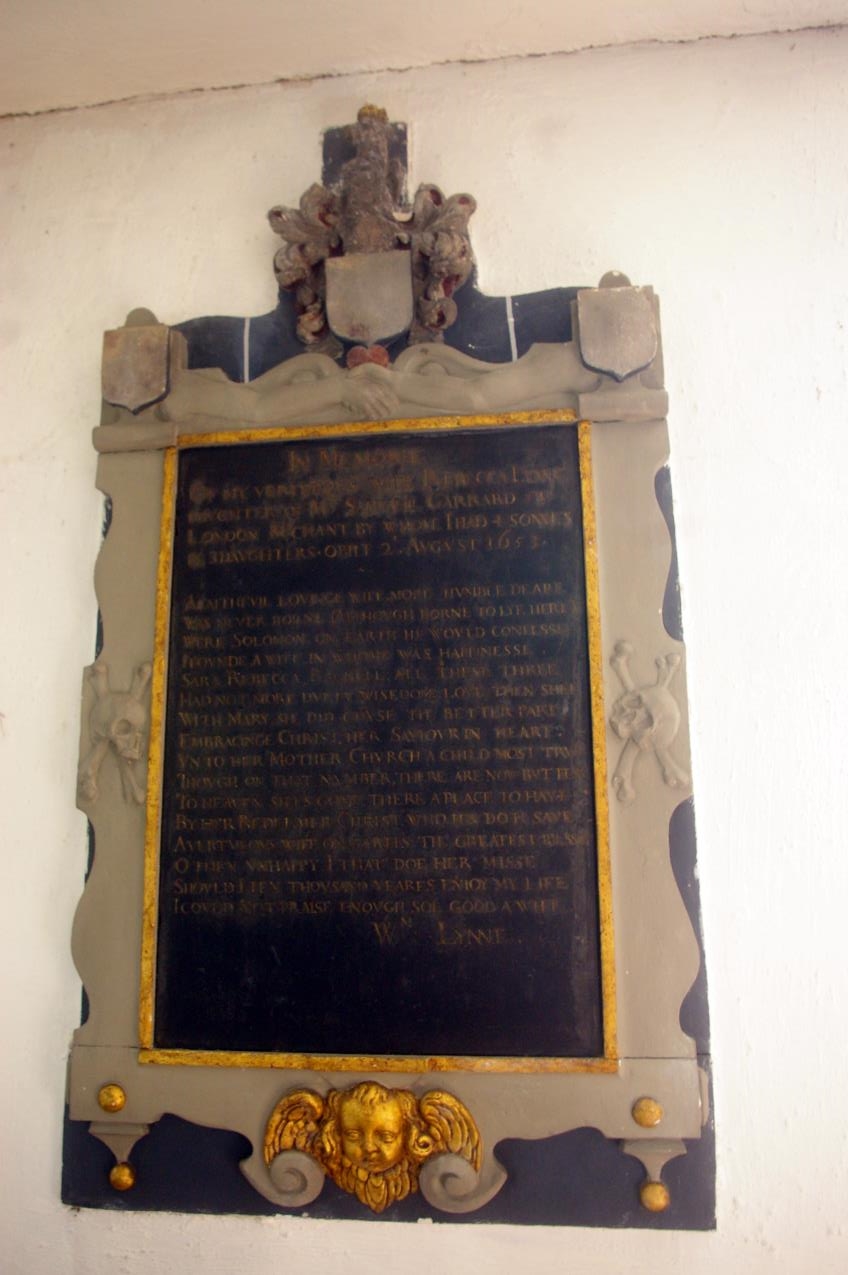 IN MEMORIE
OF MY VERTVOVS WIFE REBECCA LYNNE
DAVGHTER OF Mr GARRARD OF
LONDON MrCHANT BY WHOME I HAD 4 SONNES
& 3 DAVGHTERS. OBIIT 2 AVGVST 1653.
A FAITHFVLL LOVINGE WIFE, MORE HVMBLE DEARE
WAS NEVER BORNE (ALTHOVGH BORNE TO LYE HERE)
WERE SOLOMON ON EARTH HE WOVLD CONFESSE
I FOVNDE A WIFE IN WHOME WAS HAPPINESSE
SARA REBECCA RACHELL, ALL THESE THREE
HAD NOT MORE DVETY, WISEDOME, LOVE THEN SHEE
WITH MARY SHE DID CHVSE THE BETTER PARTE
EMBRACINGE CHRIST, HER SAVIOVR IN HEARTE
VNTO HER MOTHER CHVRCH A CHILD MOST TRW
THOVGH OF THAT NVMBER, THERE ARE NOW BVT FEW
TO HEAVEN SHE'S GONE THERE A PLACE TO HAVE
BY HER REDEEMER CHRIST, WHO HER DOTH SAVE
A VERTVOVS WIFE ON EARTH IS THE GREATEST BLISSE
O THEN VNHAPPY I THAT DOE HER MISSE
SHOVLD I TEN THOVSAND YEARES ENIOY MY LIFE
I COVLD NOT PRAISE ENOVGH SOE GOOD A WIFE
WM LYNNE